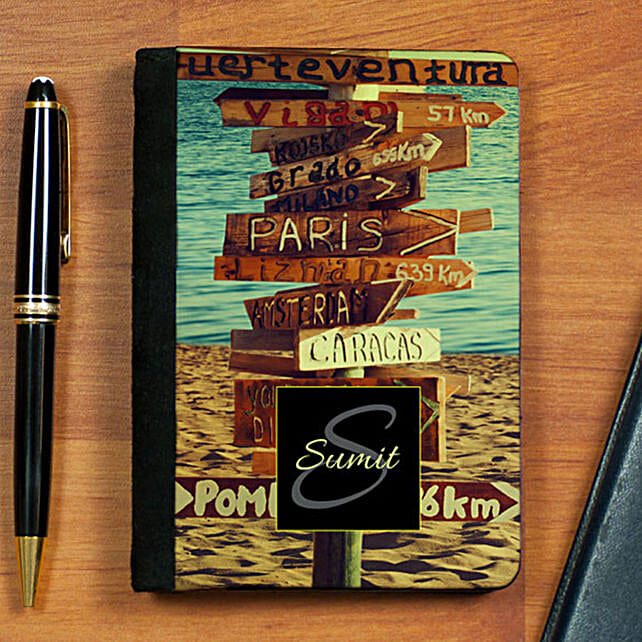 uerteventura
Vigan 57 Km
KOJSKO
Grado 696 Km
MILANO
PARIS
Liznan 639 Km
AMSTERDAM
CARACAS
YO
DI
S
Sumit
POM 6km